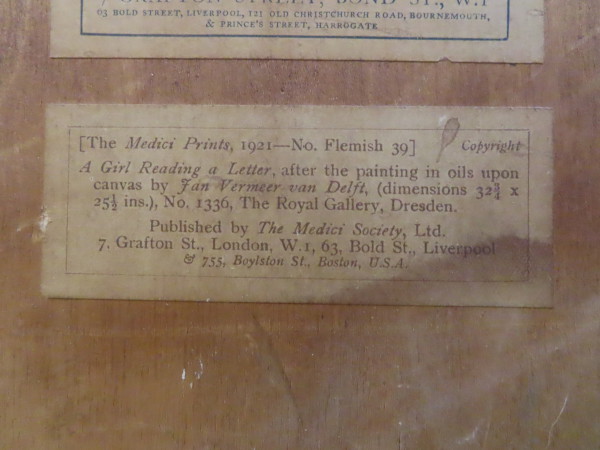 7 GRAFTON STREET, BOND ST., W.1
63 BOLD STREET, LIVERPOOL, 121 OLD CHRISTCHURCH ROAD, BOURNEMOUTH,
& PRINCE'S STREET, HARROGATE
[The Medici Prints, 1921—No. Flemish 39] Copyright
A Girl Reading a Letter, after the painting in oils upon
canvas by Jan Vermeer van Delft, (dimensions 32¾ x
25½ ins.), No. 1336, The Royal Gallery, Dresden.
Published by The Medici Society, Ltd.
7. Grafton St., London, W.1, 63, Bold St., Liverpool
& 755, Boylston St., Boston, U.S.A.